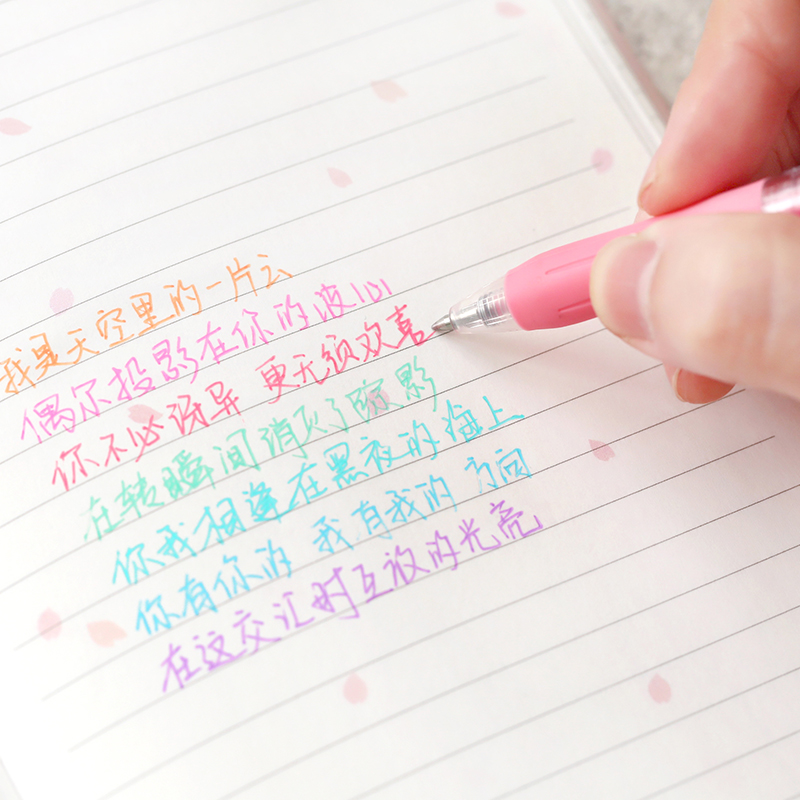 我是天空里的一片云
偶尔投影在你的波心
你不必讶异 更无须欢喜
在转瞬间消灭了踪影
你我相逢在黑夜的海上
你有你的 我有我的 方向
在这交汇时互放的光亮